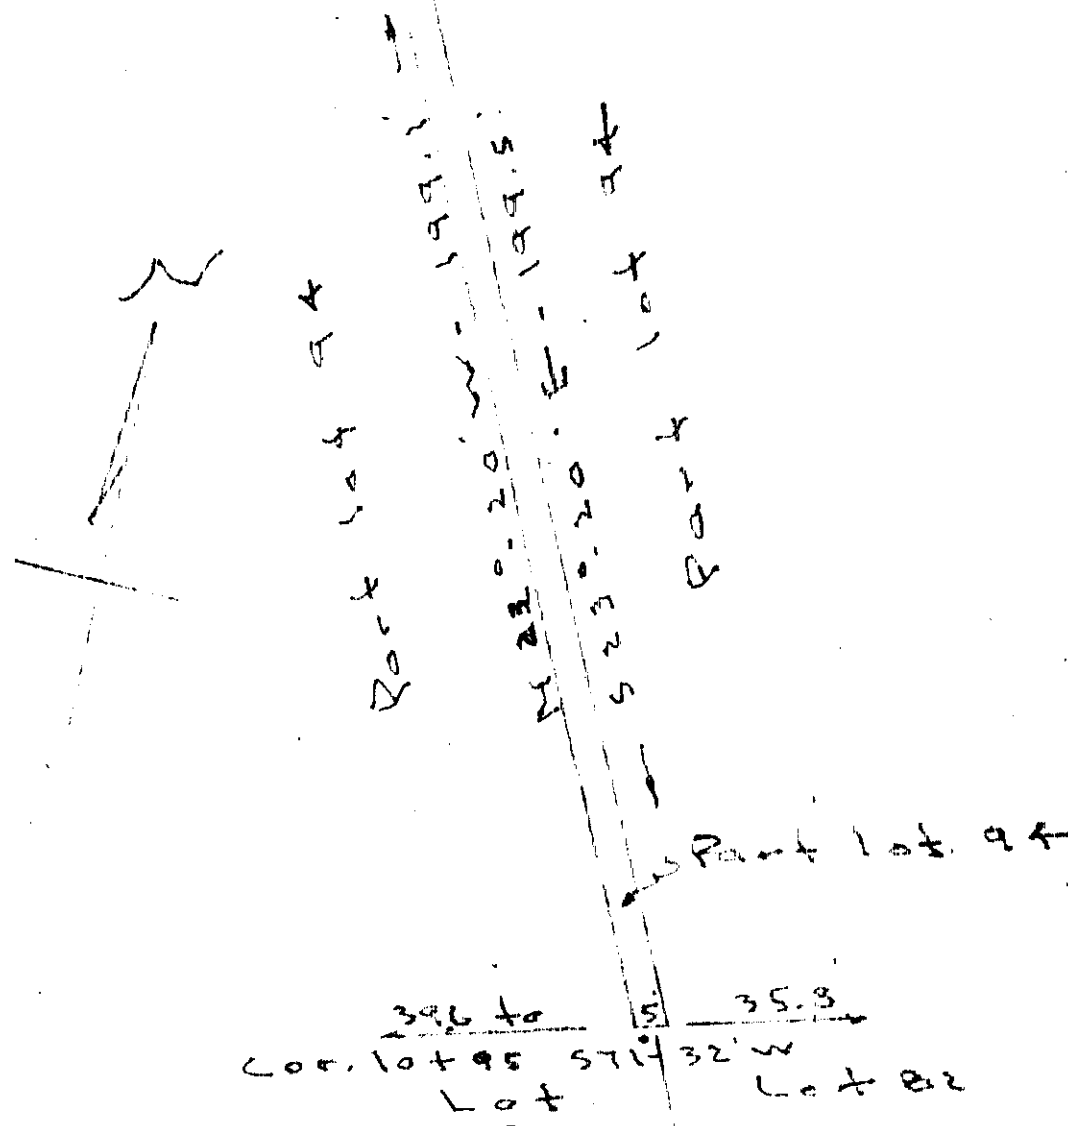 N
Part lot 94
N 23°-20' W - 199.1
S 23°-20' E - 199.5
Part lot 94
Part lot 94
39.6 to 5 35.8
Cor. lot 95 S71°-32'W
Lot Lot 82